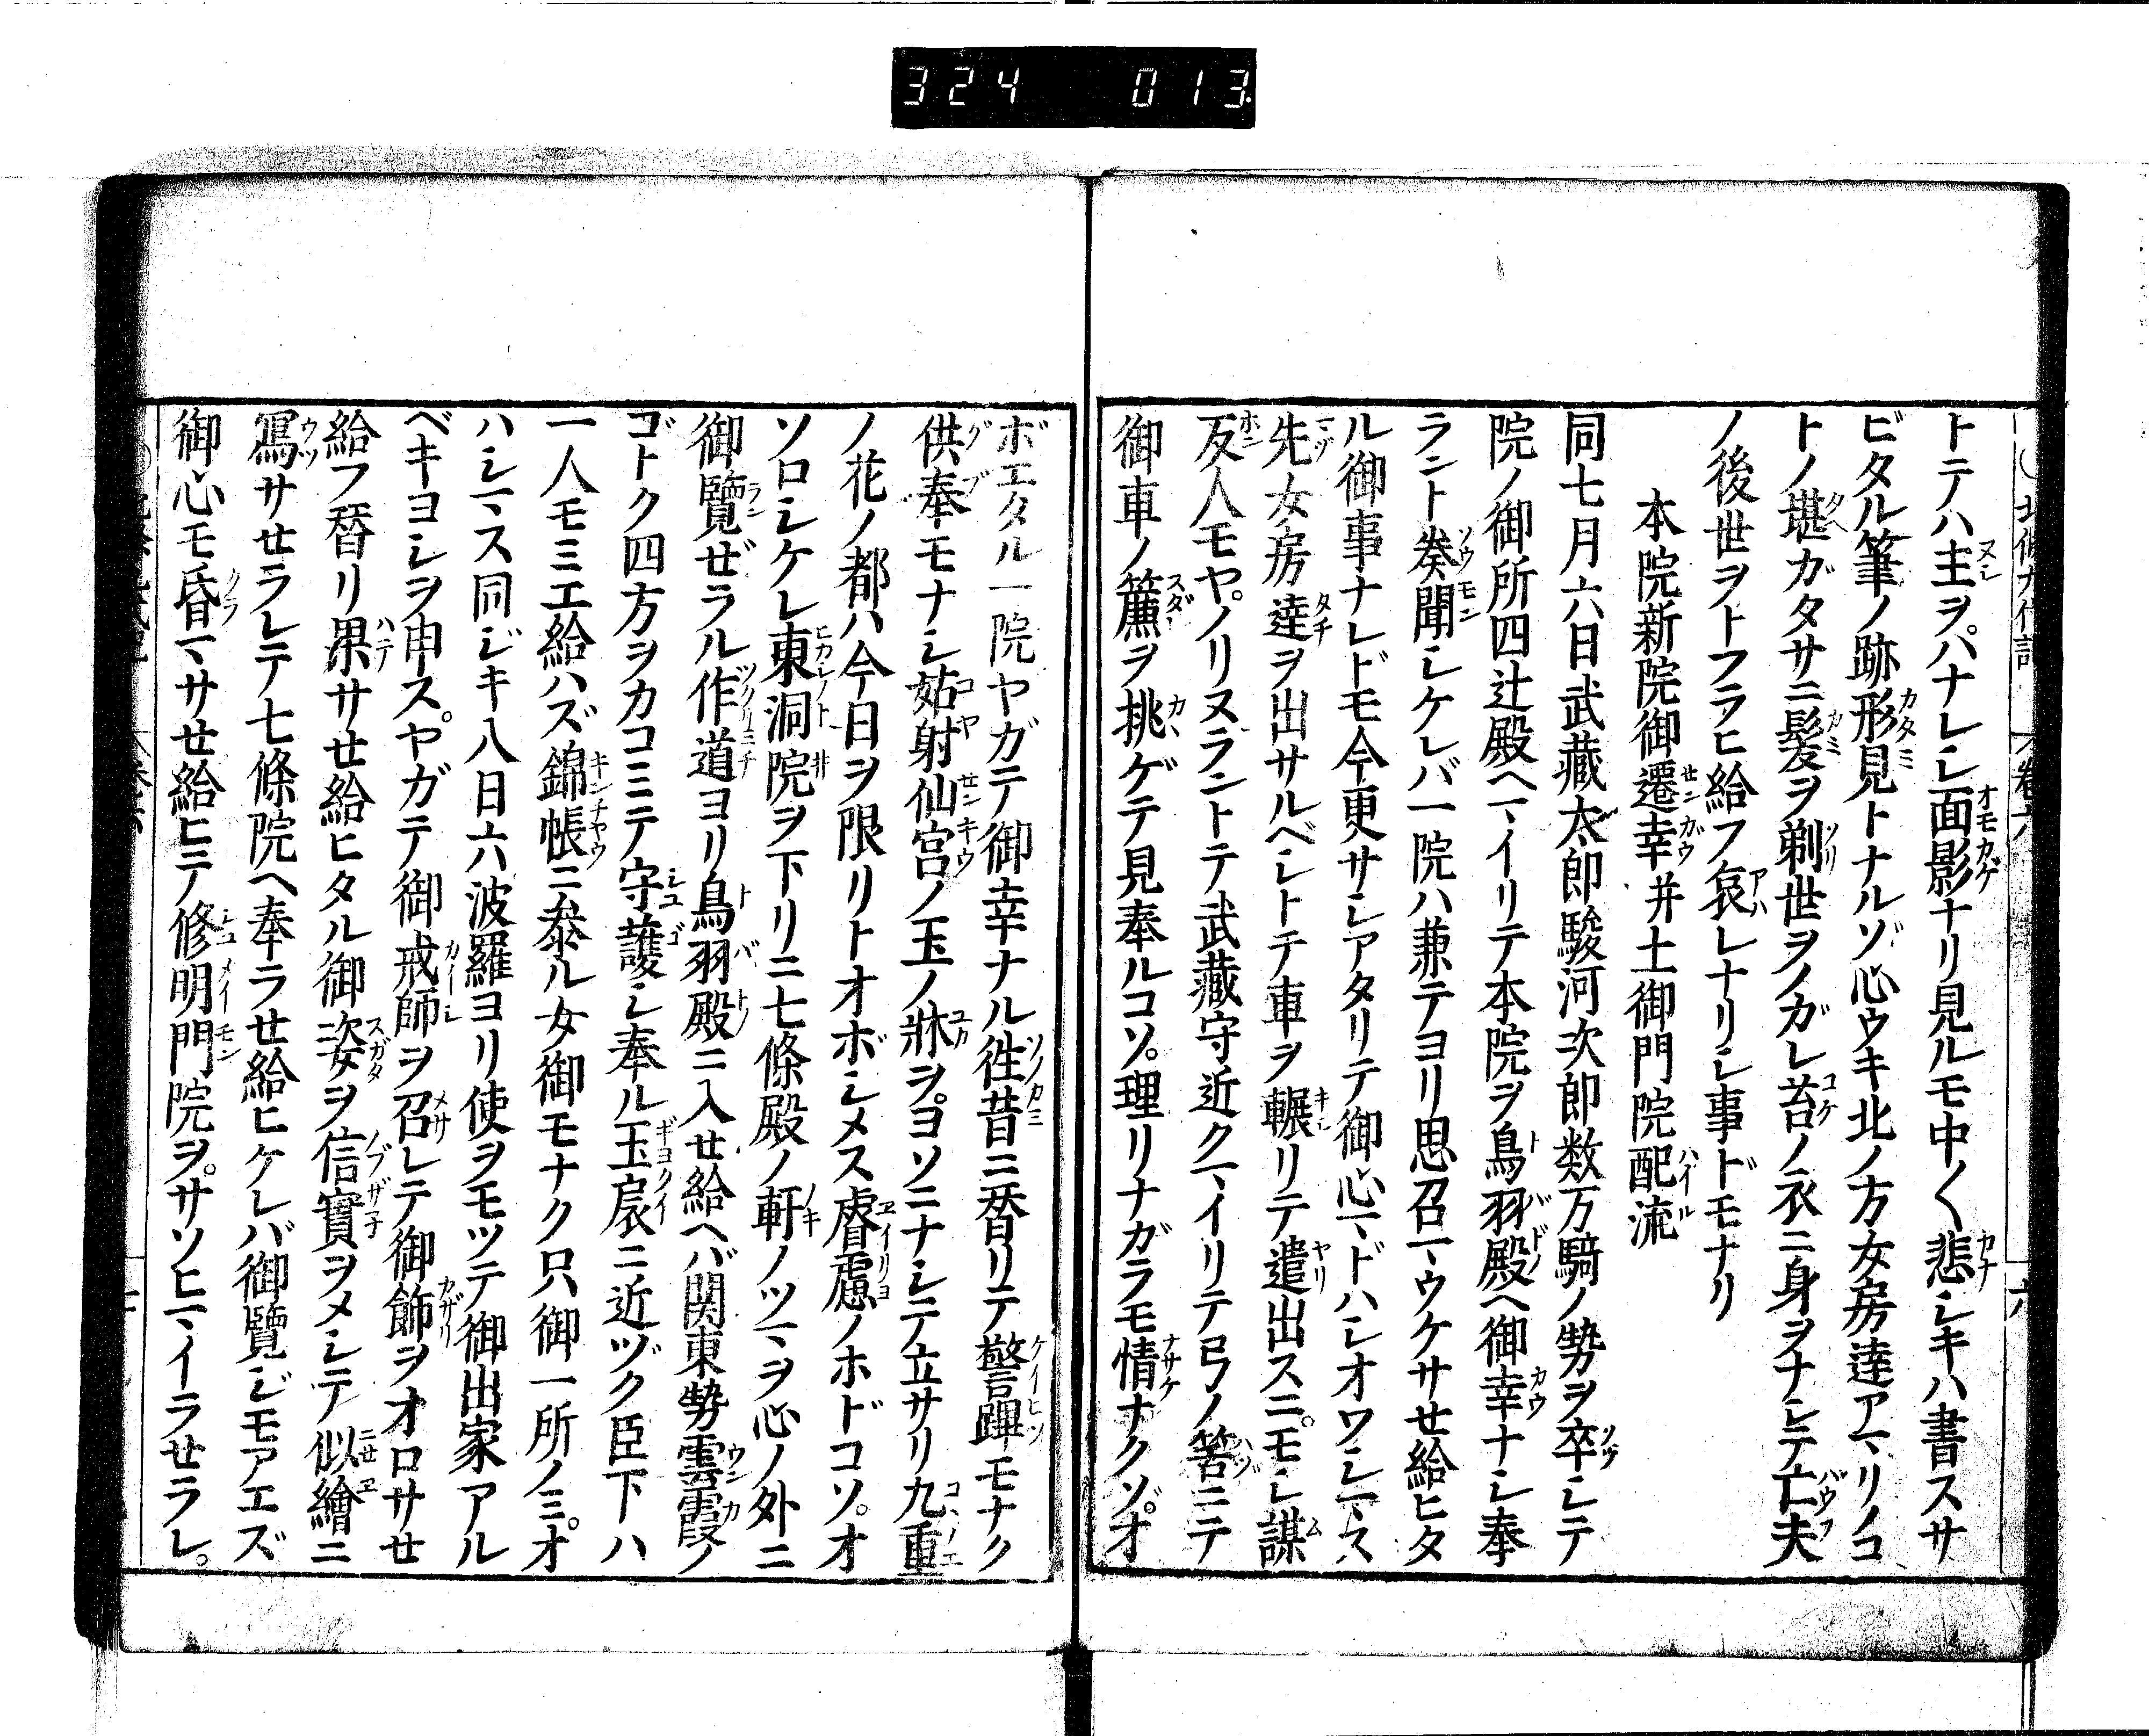 324 013
トテハ主ヲハナレシ面影ナリ見ルモ中〱悲シキハ書スサ
ビタル筆ノ跡形見トナルゾ心ウキ北ノ方女房達アマリノコ
トノ堪ガタサニ髪ヲ剃世ヲノガレ苔ノ衣ニ身ヲナシテ亡夫
ノ後世ヲトフラヒ給フ哀レナリシ事ドモナリ
本院新院御遷幸并土御門院配流
同七月六日武藏太郎駿河次郎数万騎ノ勢ヲ卒シテ
院ノ御所四辻殿ヘマイリテ本院ヲ鳥羽殿ヘ御幸ナシ奉
ラント奏聞シケレバ一院ハ兼テヨリ思召マウケサせ給ヒタ
ル御事ナレドモ今更サシアタリテ御心マドハシオワシマス
先女房達ヲ出サルベシトテ車ヲ輾リテ遣出スニ。モシ謀
反人モヤ。ノリヌラントテ武藏守近クマイリテ弓ノ筈ニテ
御車ノ簾ヲ挑ゲテ見奉ルコソ。理リナガラモ情ナクゾ。オ
ボエタル一院ヤガテ御幸ナル徃昔ニ替リテ警蹕モナク
供奉モナシ姑射仙宮ノ玉ノ牀ヲ。ヨソニナシテ立サリ九重
ノ花ノ都ハ今日ヲ限リトオボシメス睿慮ノホドコソ。オ
ソロシケレ東洞院ヲ下リニ七條殿ノ軒ノツマヲ心ノ外ニ
御覽ぜラル作道ヨリ鳥羽殿ニ入せ給ヘバ関東勢雲霞ノ
ゴトク四方ヲカコミテ守護シ奉ル玉扆ニ近ヅク臣下ハ
一人モミエ給ハズ錦帳ニ泰ル女御モナク只御一所ノミ。オ
ハシマス同ジキ八日六波羅ヨリ使ヲモツテ御出家アル
ベキヨシヲ申ス。ヤガテ御戒師ヲ召レテ御飾ヲオロサせ
給フ替リ果サせ給ヒタル御姿ヲ信實ヲメシテ似繪ニ
寫サせラレテ七條院ヘ奉ラせ給ヒケレバ御覽ジモアエズ
御心モ昏マサせ給ヒテ修明門院ヲ。サソヒマイラせラレ。